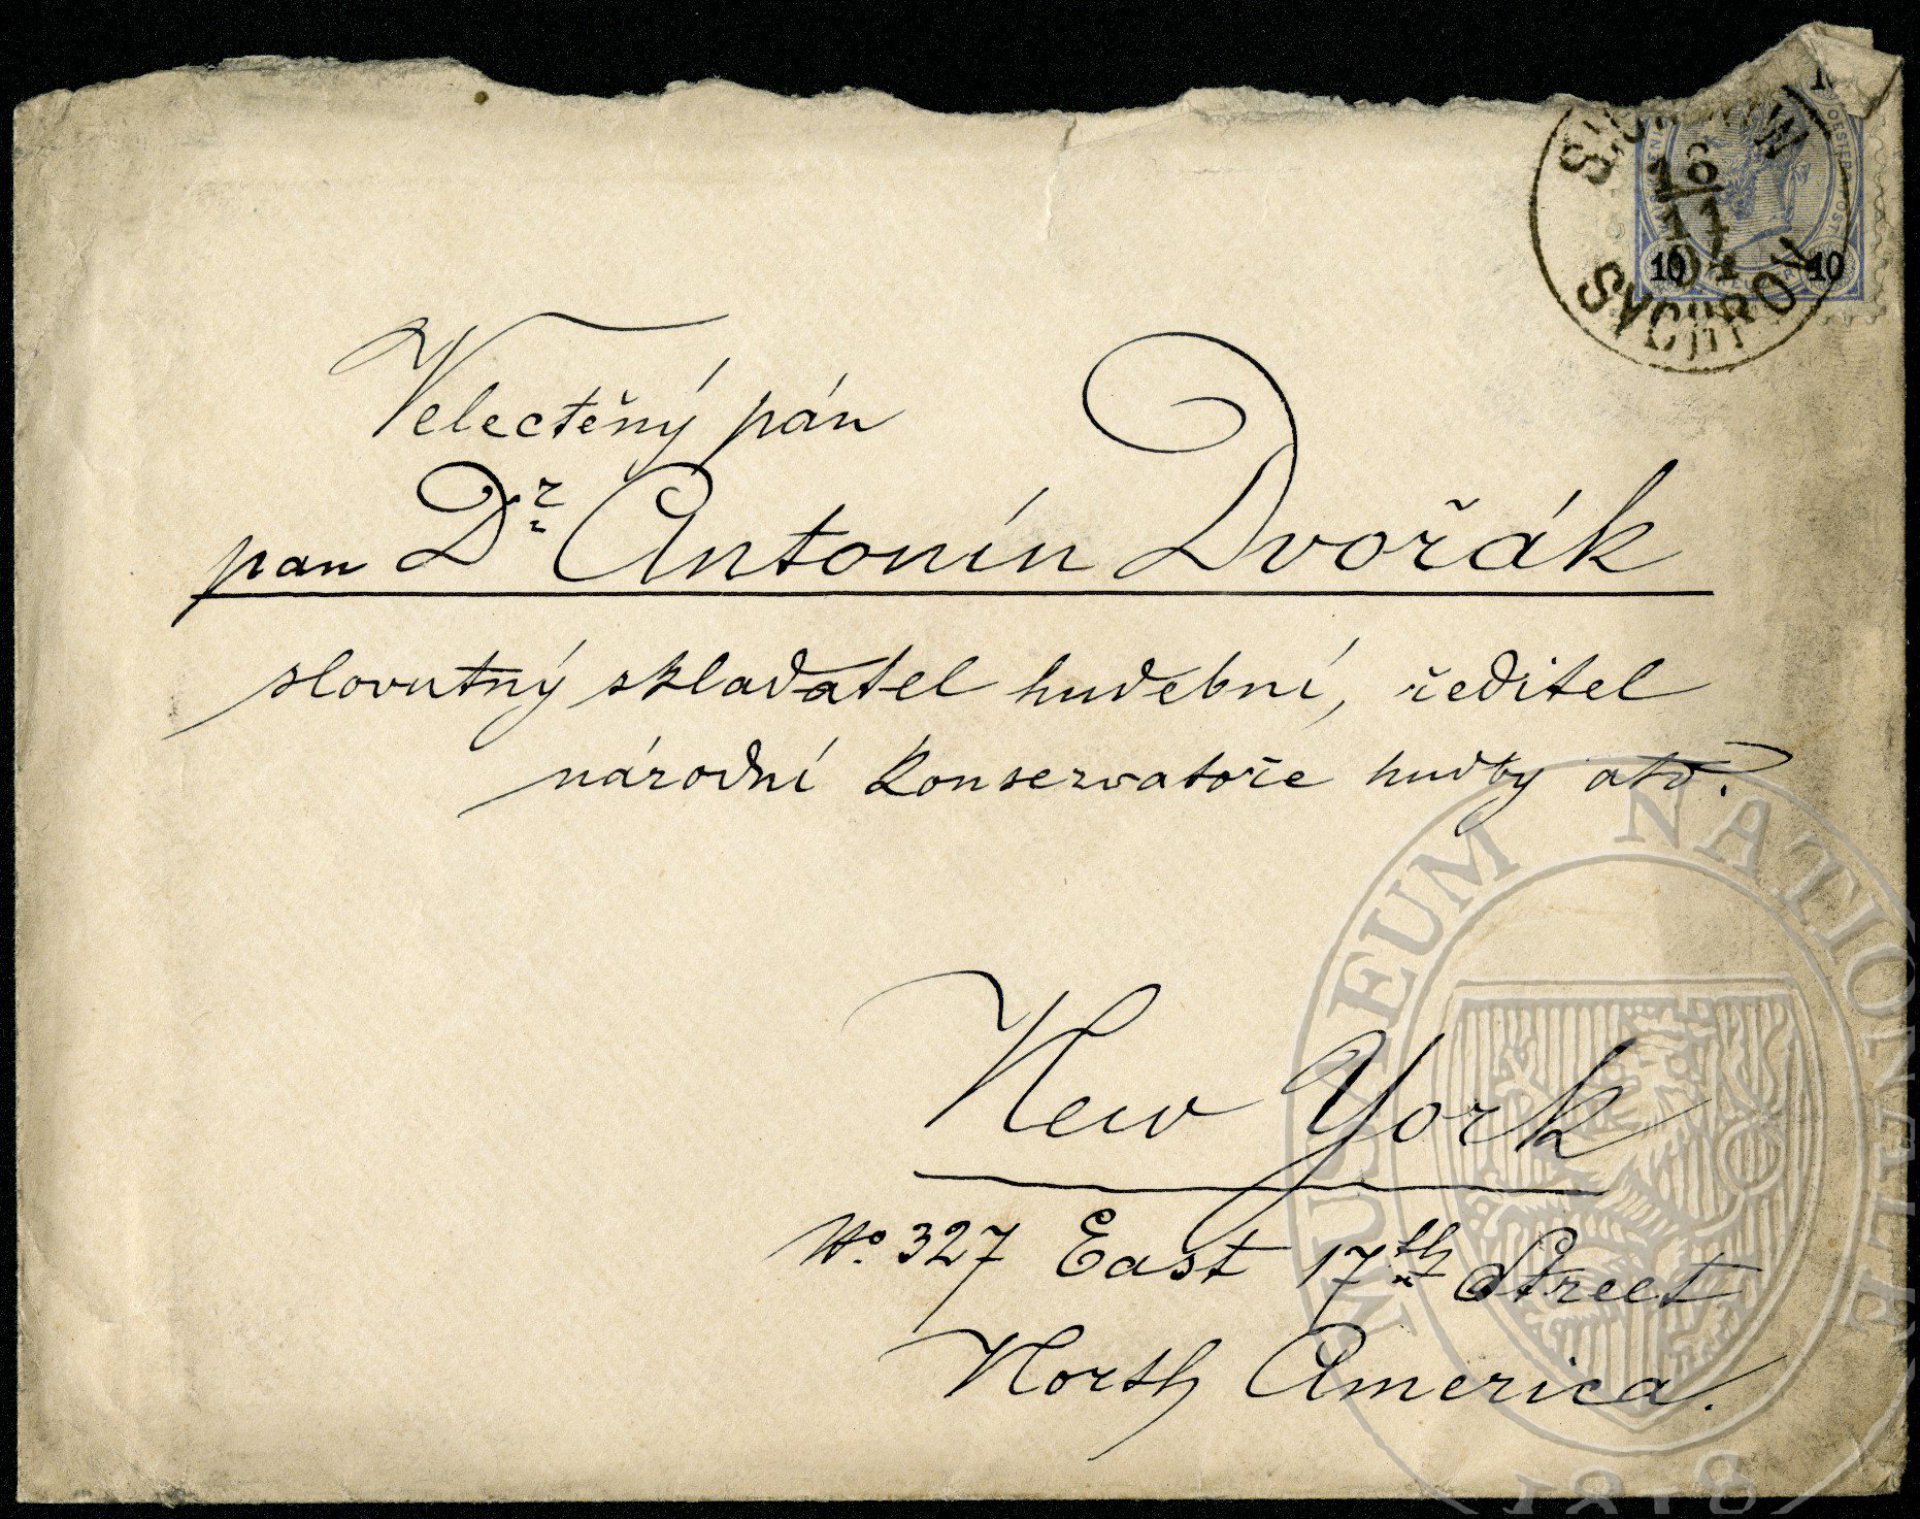 Velectěný pán
pan Dr. Antonín Dvořák
slovutný skladatel hudební, ředitel
národní konservatoře hudby atd.
New York
No. 327 East 17th Street
North America.
SYCHROV
16
11
94
10 10
MUSEUM NATIONALE
1818